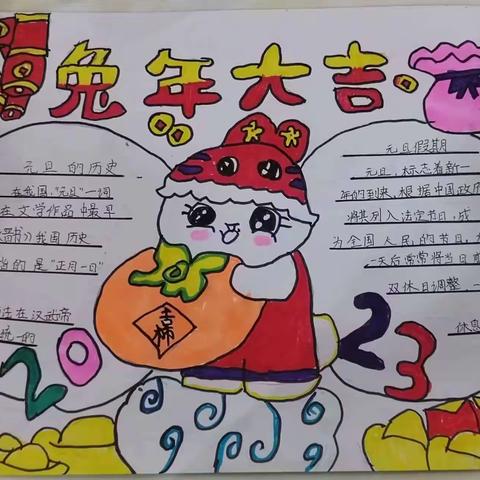 兔年大吉
元旦的历史
在我国,"元旦"一词
在文学作品中最早
书》我国历史
的是"正月一日"
在汉武帝
统一的
元旦假期
元旦,标志着新一
年的到来,根据中国政府
将其列入法定节日,成
为全国人民的节日,
一天后常常将当日
双休日调整,一
休息
柿
2023